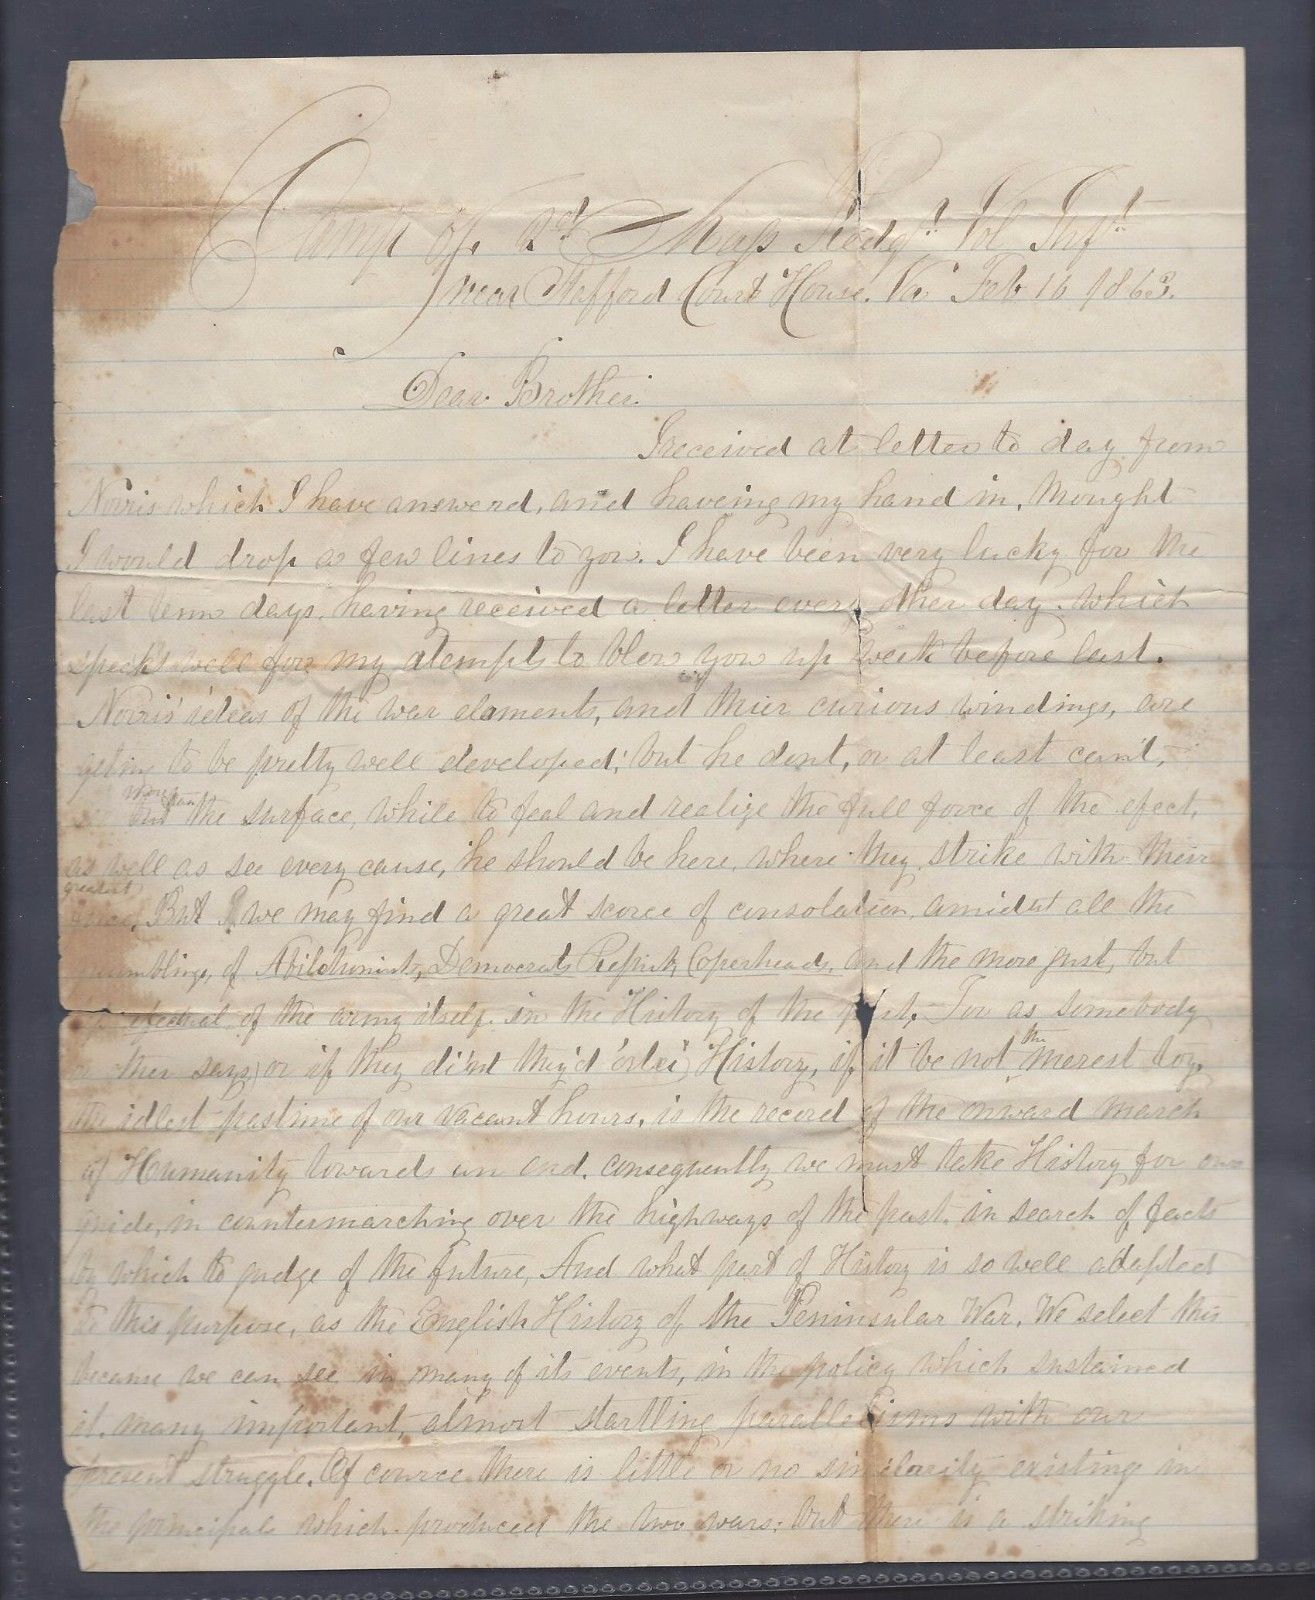 Camp of 2d Mass Regt Vol Inft
near Stafford Court House. Va Feb 16 1863.
Dear Brother.
I received at letter to day from
Norris which I have answerd, and haveing my hand in, thought
I would drop a few lines to you. I have been very lucky for the
last tenn days, having received a letter every other day. which
speeks well for my atempts to blow you up week before last.
Norris' ideas of the war elaments, and thier curious windings, are
geting to be pretty well developed; but he dont, or at least can't,
but the surface, while to feal and realize the full force of the efect,
as well as see every cause, he should be here, where they strike with thier
greatest
force. But I we may find a great scorce of consolation, amidst all the
grumblings, of Abilishonists, Democrats, Repub, Coperheads, and the more just, but
of the army itself. in the History of the past. For as somebody
or ther says) or if they did'nt they'd 'orter) History, if it be not the merest toy,
the idlest pastime of our vacant hours, is the record of the onward march
of Humanity towards an end. consequently we must take History for our
guide, in countermarching over the highways of the past. in search of facts
by which to judge of the future, And what part of History is so well adapted
to this purpose, as the English History of the Peninsular War. We select this
because we can see in many of its events, in the policy which sustained
it, many important, almost startling parallelisms with our
present struggle. Of cource there is little or no similarity existing in
the principals which produced the two wars; but there is a striking